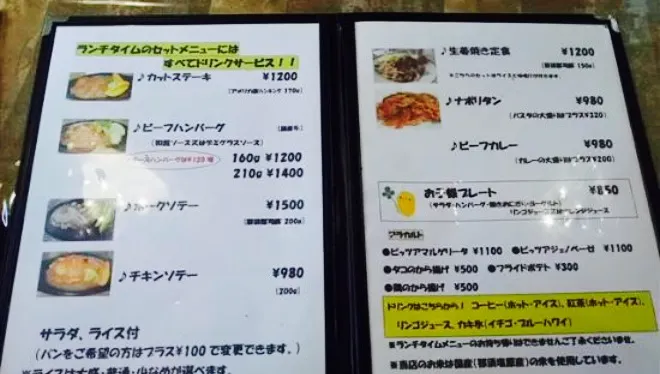 ランチタイムのセットメニューには
すべてドリンクサービス！！
♪カットステーキ ¥1200
(アメリカ産ハンキング 170g)
♪ビーフハンバーグ (国産牛)
(和風ソース又はデミグラスソース)
160g ¥1200
210g ¥1400
♪ポークソテー ¥1500
(那須郡司豚 200g)
♪チキンソテー ¥980
(200g)
サラダ、ライス付
(パンをご希望の方はプラス¥100で変更できます。)
※ライスは大盛・普通・少なめが選べます。
♪生姜焼き定食 ¥1200
(那須郡司豚 150g)
♪ナポリタン ¥980
(パスタの大盛りはプラス¥220)
♪ビーフカレー ¥980
(カレーの大盛りはプラス¥200)
お子様プレート ¥850
リンゴジュース又はオレンジジュース
アラカルト
●ピッツアマルゲリータ ¥1100 ●ピッツアジェノベーゼ ¥1100
●タコのから揚げ ¥500 ●フライドポテト ¥300
●鶏のから揚げ ¥500
ドリンクはこちらから！ コーヒー(ホット・アイス)、紅茶(ホット・アイス)、
リンゴジュース、カキ氷(イチゴ・ブルーハワイ)
※ランチタイムメニューのお持ち帰りはできませんご了承くださいませ。
※当店のお米は国産(那須塩原産)の米を使用しています。